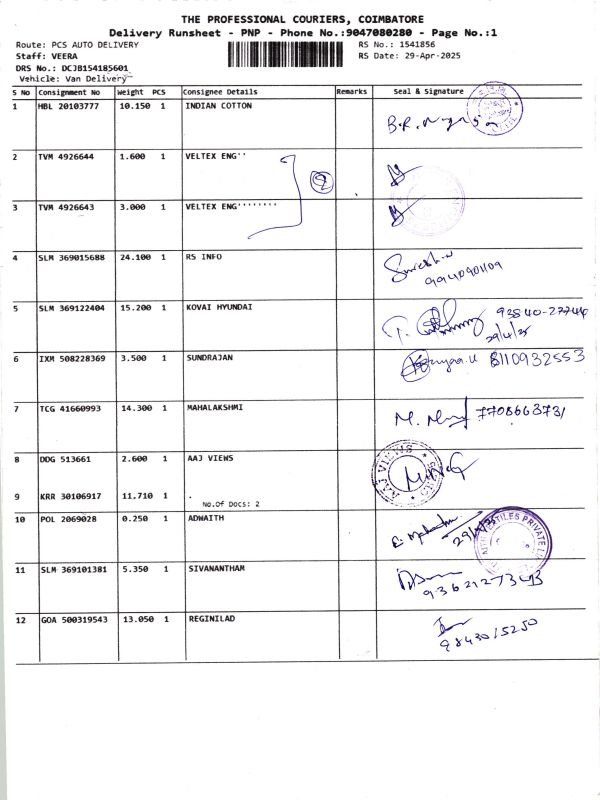 THE PROFESSIONAL COURIERS, COIMBATORE
Delivery Runsheet - PNP - Phone No.:9047080280 - Page No.:1
Route: PCS AUTO DELIVERY
RS No.: 1541856
Staff: VEERA
RS Date: 29-Apr-2025
DRS No.: DCJB154185601
Vehicle: Van Delivery
S No Consignment No Weight PCS Consignee Details Remarks Seal & Signature
1 HBL 20103777 10.150 1 INDIAN COTTON
2 TVM 4926644 1.600 1 VELTEX ENG''
2
3 TVM 4926643 3.000 1 VELTEX ENG''''''''
4 SLM 369015688 24.100 1 RS INFO
9940901109
5 SLM 369122404 15.200 1 KOVAI HYUNDAI
29/4/25
6 IXM 508228369 3.500 1 SUNDRAJAN
8110932553
7 TCG 41660993 14.300 1 MAHALAKSHMI
M. 7708663731
8 DDG 513661 2.600 1 AAJ VIEWS
AAJ VIEWS
9 KRR 30106917 11.710 1 .
No.Of Docs: 2
10 POL 2069028 0.250 1 ADWAITH
29/4/25
TEXTILES PRIVATE
11 SLM 369101381 5.350 1 SIVANANTHAM
12 GOA 500319543 13.050 1 REGINILAD
9843015250